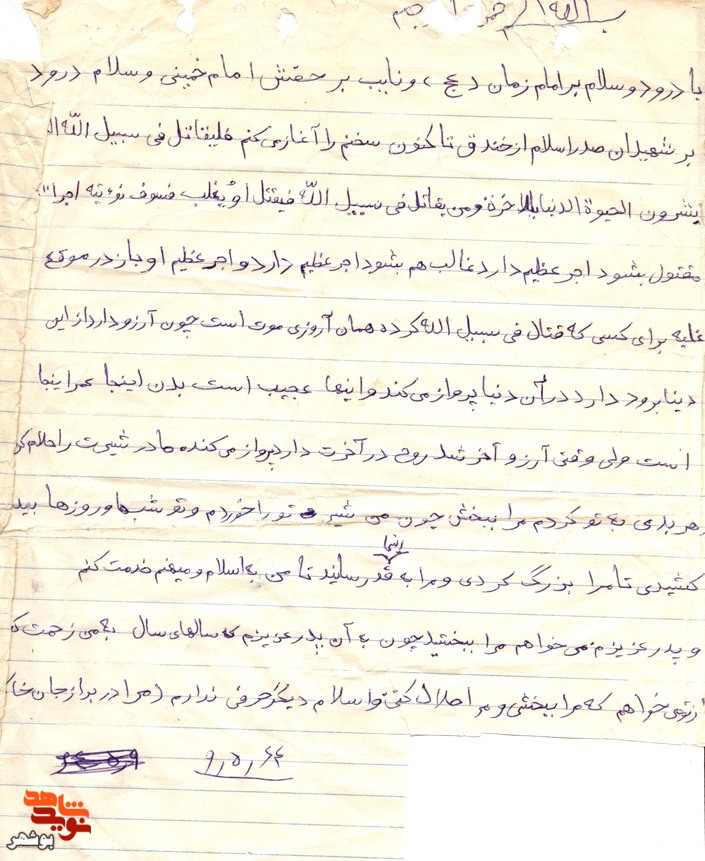 بسم الله الرحمن الرحیم
با درود و سلام بر امام زمان (عج) و نایب بر حقش امام خمینی و سلام درود
بر شهیدان صدر اسلام از خندق تا کنون سخنم را آغاز می کنم فلیقاتل فی سبیل الله ال
یشرون الحیوة الدنیا بالاخرة ومن یقاتل فی سبیل الله فیقتل او یغلب فسوف نوءتیه اجرا
مقتول بشود اجر عظیم دارد غالب هم بشود اجر عظیم دارد و اجر عظیم او باز در موقع
غلبه برای کسی که قتال فی سبیل الله کرده همان آروزی موت است چون آرزو دارد از این
دینا برود دارد در آن دنیا پرواز می کند و اینها عجیب است بدن اینجا عمر اینجا
است ولی وقتی آرزو آخر شد روح در آخرت دارد پرواز می کنده مادر شیرت را حلالم کن
هر بدی به تو کردم مرا ببخش چون من شیر تو را خوردم و تو شبها و روزها بید
کشیدی تا مرا بزرگ کردی و مرا به قد رسانید تا من به اسلام و میهنم خدمت کنم
و پدر عزیزم می خواهم مرا ببخشید چون به آن پدر عزیزم که سالهای سال به من زحمت ک
از تو می خواهم که مرا ببخشی و مرا حلال کنی والسلام دیگر حرفی ندارم (مرا در برازجان خاک
۹٫۵٫۶۴
شاهد
نوید
بوشهر